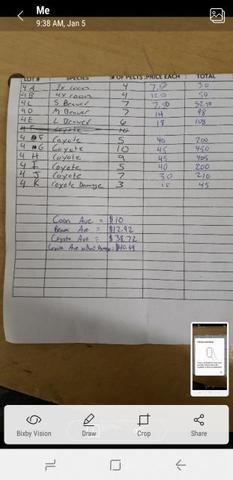 Me
9:38 AM, Jan 5
LOT # SPECIES # OF PELTS PRICE EACH TOTAL
4 A 3x coons 4 7.50 30
4 B 4x coons 4 12.50 50
4 C S Beaver 7 7.50 52.50
4 D M Beaver 7 14 98
4 E L Beaver 6 18 108
4 F Coyote 10
4 F Coyote 5 40 200
4 G Coyote 10 45 450
4 H Coyote 9 45 405
4 I Coyote 5 40 200
4 J Coyote 7 30 210
4 K Coyote Damage 3 15 45
Coon Ave = $10
Beaver Ave = $12.92
Coyote Ave = $38.72
Coyote Ave without Damage
Bixby Vision
Draw
Crop
Share